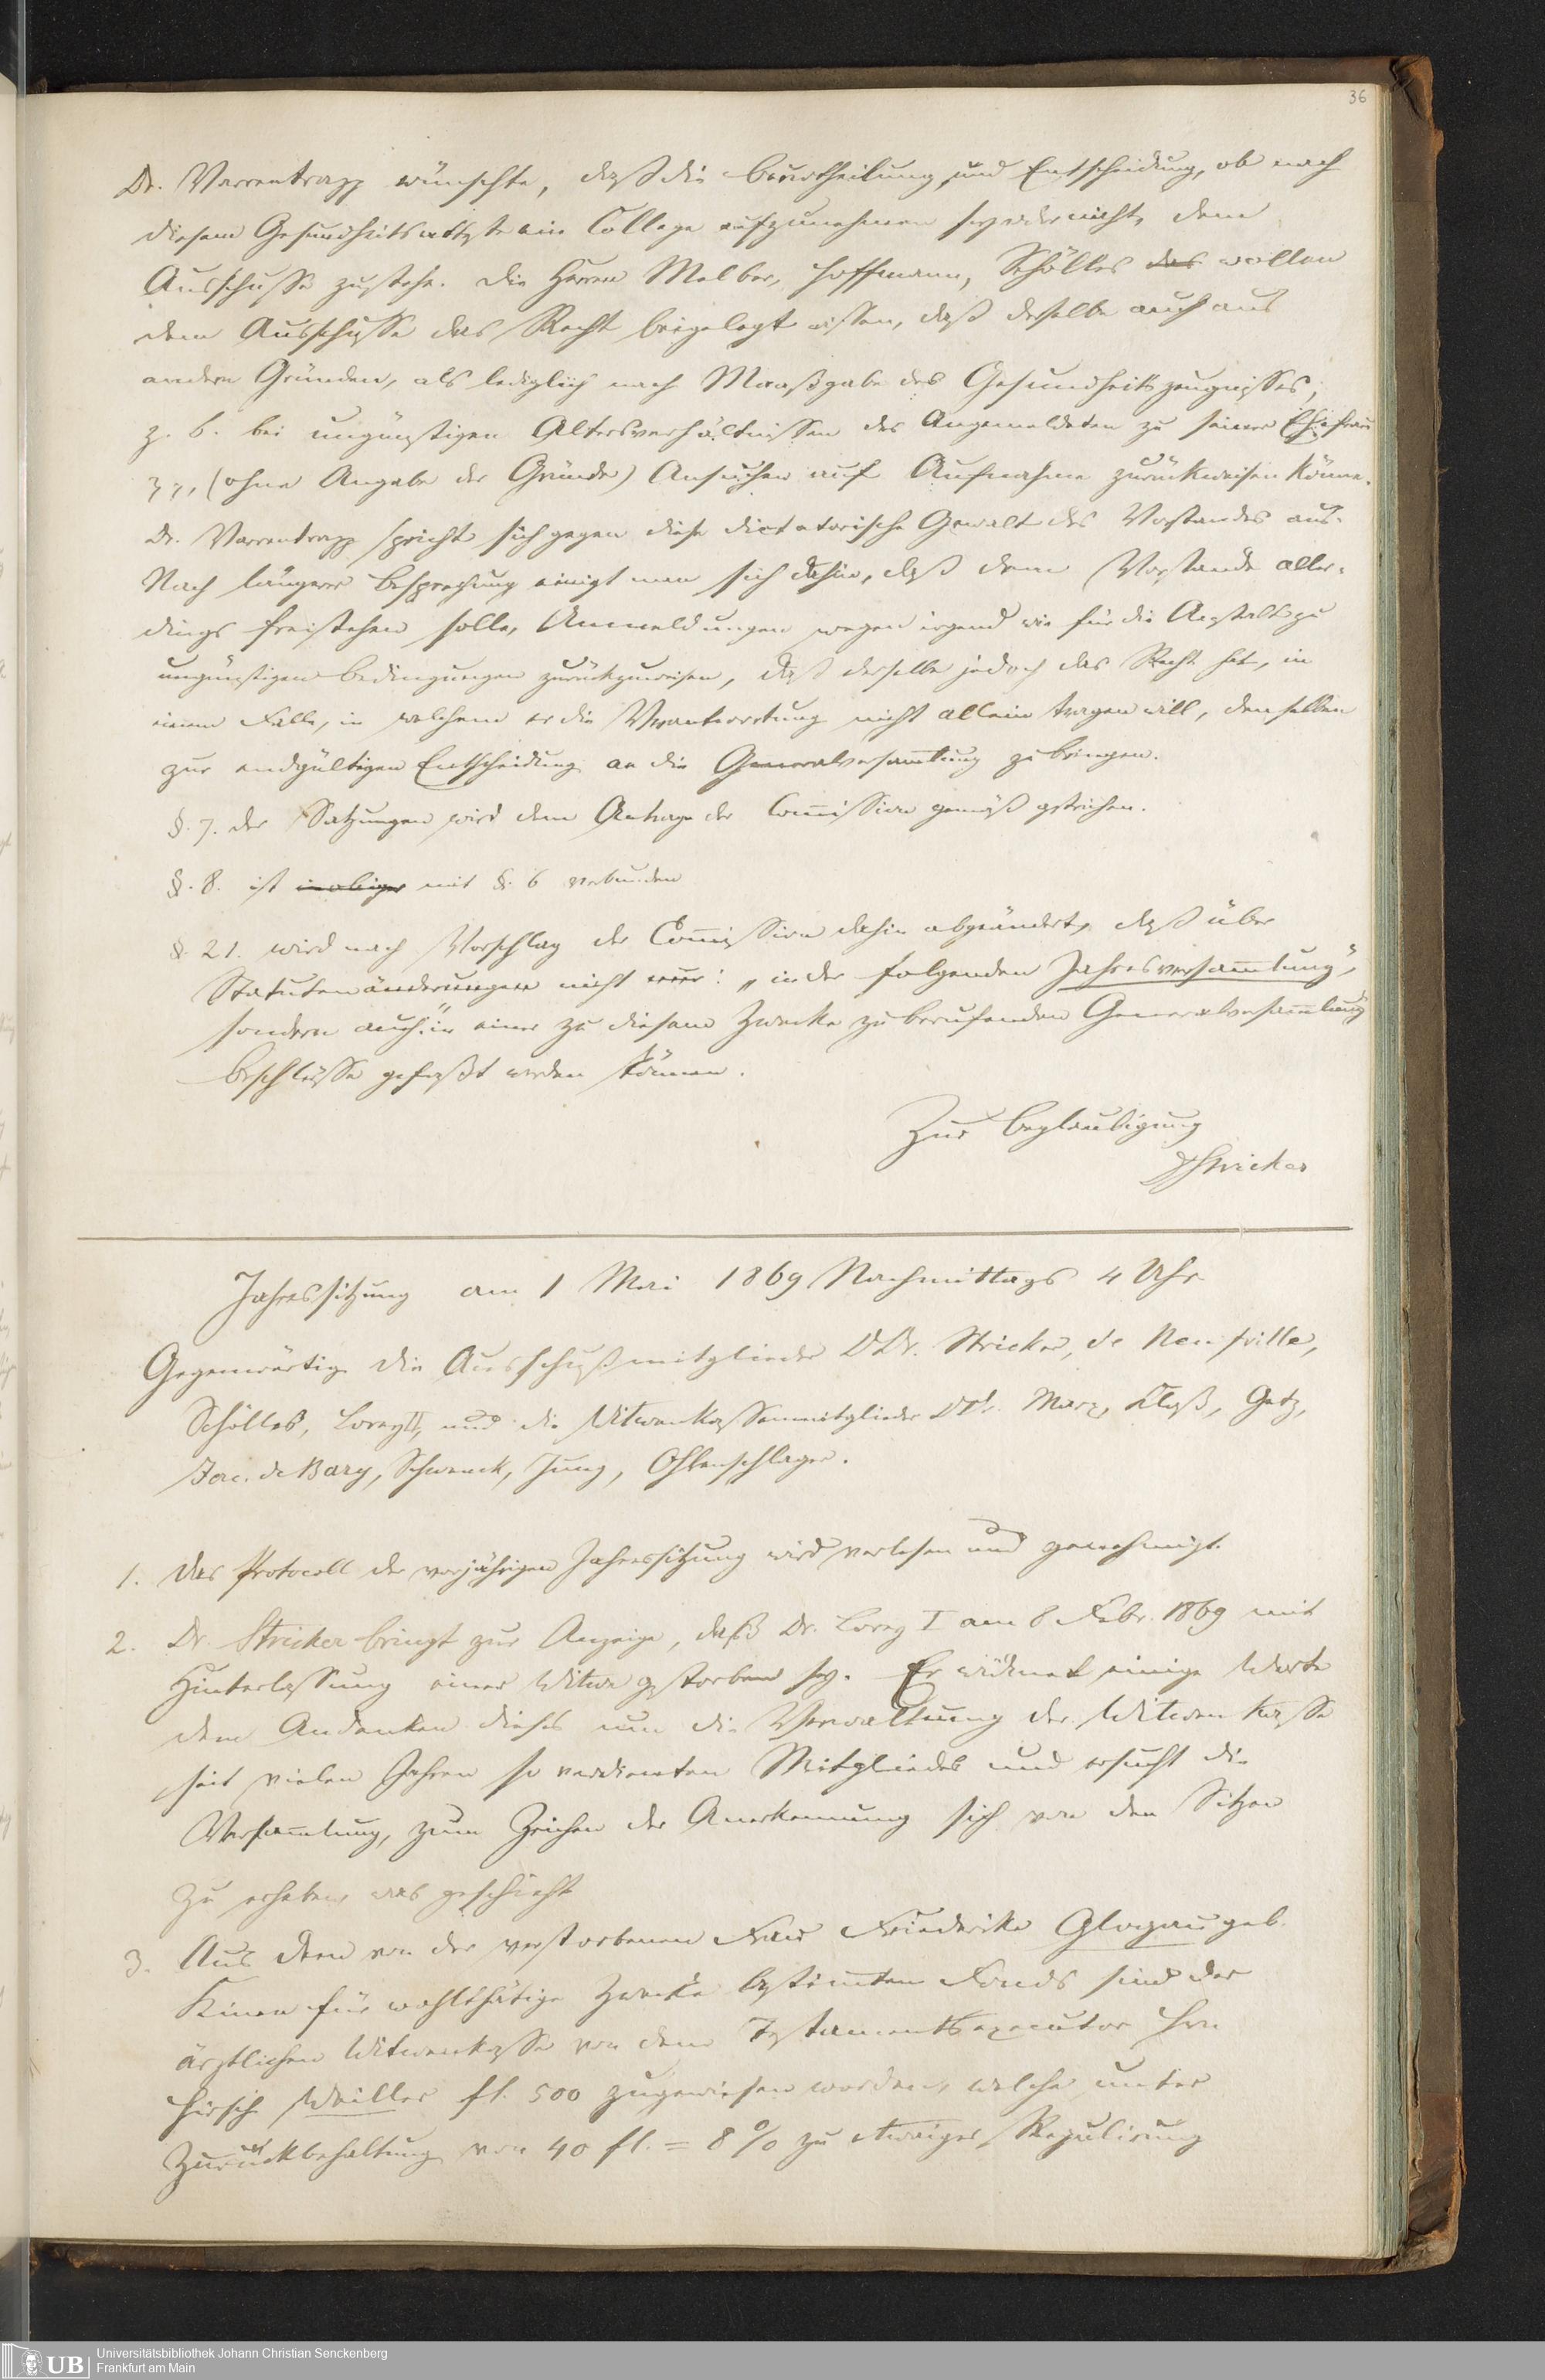 36
Dr. Varrentrapp wünschte, daß die Beurtheilung und Entscheidung, ob nach
diesem Gesundheitsatteste ein College aufzunehmen sey oder nicht, dem
Ausschusse zustehe. Die Herren Melber, Hoffmann, Schölles das wollen
dem Ausschusse das Recht beigelegt wissen, daß derselbe auch aus
andern Gründen, als lediglich nach Maaßgabe des Gesundheitszeugnisses,
z. B. bei ungünstigen Altersverhältnissen des Angemeldeten zu seiner Ehefrau
(ohne Angabe der Gründe) Ansuchen auf Aufnahme zurückweisen könne.
Dr. Varrentrapp spricht sich gegen diese dictatorische Gewalt des Vorstandes aus.
Nach längerer Besprechung einigt man sich dahin, daß dem Vorstande aller-
dings freistehen solle, Anmeldungen wegen irgend wie für die Anstalt zu
ungünstigen Bedingungen zurückzuweisen, daß derselbe jedoch das Recht hat, in
einem Falle, in welchem er die Verantwortung nicht allein tragen will, denselben
zur endgültigen Entscheidung an die Generalversam̅lung zu bringen.
§. 7. der Satzungen wird dem Antrage der Com̅ission gemäß gestrichen.
§. 8. ist in obiger mit §. 6 verbunden
§. 21. wird nach Vorschlag der Com̅ission dahin abgeändert, daß über
Statutenänderungen nicht nur: „in der folgenden Jahresversam̅lung",
sondern auch: „in einer zu diesem Zwecke zu berufenden Generalversam̅lung"
Beschlüsse gefaßt werden können.
Zur Beglaubigung
Dr Stricker
Jahressitzung am 1 Mai 1869 Nachmittags 4 Uhr
Gegenwärtig die Ausschußmitglieder DDr. Stricker, de Neufville,
Schölles, Lorey II, und die Witwenkassenmitglieder DDr. Marx, Kloß, Getz,
Jac. de Bary, Schwenck, Jung, Ohlenschlager.
1. Das Protocoll der vorjährigen Jahressitzung wird verlesen und genehmigt.
2. Dr. Stricker bringt zur Anzeige, daß Dr. Lorey I am 8 Febr. 1869 mit
Hinterlassung einer Witwe gestorben sey. Er widmet einige Worte
dem Andenken dieses um die Verwaltung der Witwenkasse
seit vielen Jahren so verdienten Mitgliedes und ersucht die
Versam̅lung, zum Zeichen der Anerkennung sich von den Sitzen
zu erheben, was geschieht
3. Aus dem von der verstorbenen Frau Friederike Glogau geb.
für wohlthätige Zwecke bestim̅ten Fonds sind der
ärztlichen Witwenkasse von dem Testamentsexecutor Hrn
Hirsch Weiller fl. 500 zugewiesen worden, welche unter
Zurückbehaltung von 40 fl. = 8 % zu etwaiger Regulirung
Universitätsbibliothek Johann Christian Senckenberg
Frankfurt am Main
UB